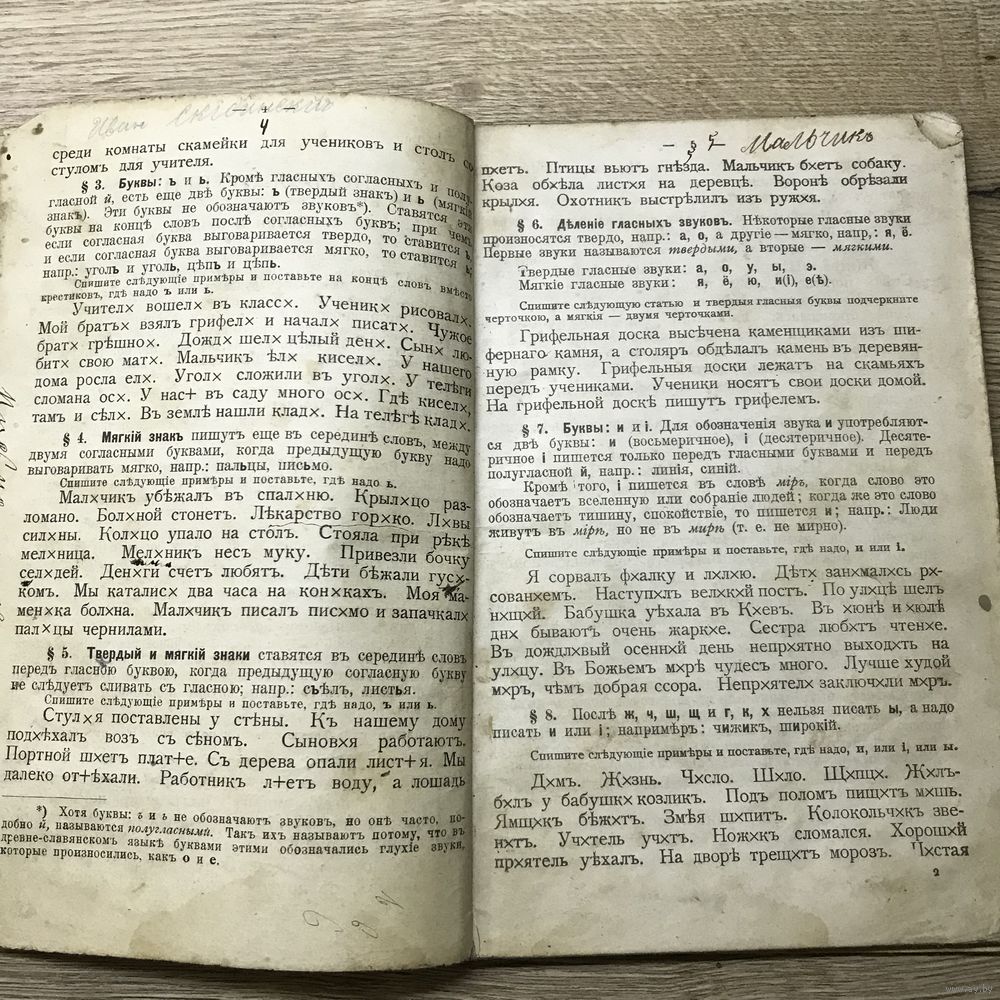 Иван
4
среди комнаты скамейки для учениковъ и столъ со
стуломъ для учителя.
§ 3. Буквы: ъ и ь. Кромѣ гласныхъ согласныхъ и полу-
гласной й, есть еще двѣ буквы: ъ (твердый знакъ) и ь (мягкій
знакъ). Эти буквы не обозначаютъ звуковъ*). Ставятся эти
буквы на концѣ словъ послѣ согласныхъ буквъ; при чемъ,
если согласная буква выговаривается твердо, то ставится ъ,
и если согласная буква выговаривается мягко, то ставится ь;
напр.: уголъ и уголь, цѣпъ и цѣпь.
Спишите слѣдующіе примѣры и поставьте на концѣ словъ вмѣсто
крестиковъ, гдѣ надо ъ или ь.
Учител× вошел× въ класс×. Ученик× рисовал×.
Мой братъ× взял× грифел× и начал× писат×. Чужое
брат× грѣшно×. Дожд× шел× цѣлый ден×. Сын× лю-
бит× свою мат×. Мальчик× ѣл× кисел×. У нашего
дома росла ел×. Угол× сложили въ угол×. У телѣги
сломана ос×. У нас+ въ саду много ос×. Гдѣ кисел×,
тамъ и сѣл×. Въ землѣ нашли клад×. На телѣгѣ клад×.
§ 4. Мягкій знакъ пишутъ еще въ серединѣ словъ, между
двумя согласными буквами, когда предыдущую букву надо
выговаривать мягко, напр.: пальцы, письмо.
Спишите слѣдующіе примѣры и поставьте, гдѣ надо ь.
Мал×чикъ убѣжалъ въ спал×ню. Крыл×цо раз-
ломано. Бол×ной стонетъ. Лѣкарство гор×ко. Л×вы
сил×ны. Кол×цо упало на столъ. Стояла при рѣкѣ
мел×ница. Мел×никъ несъ муку. Привезли бочку
сел×дей. Ден×ги счетъ любятъ. Дѣти бѣжали гус×-
комъ. Мы катались× два часа на кон×кахъ. Моя ма-
мен×ка бол×на. Мал×чикъ писалъ пис×мо и запачкал×
пал×цы чернилами.
§ 5. Твердый и мягкій знаки ставятся въ серединѣ словъ
передъ гласною буквою, когда предыдущую согласную букву
не слѣдуетъ сливать съ гласною; напр.: съѣлъ, листья.
Спишите слѣдующіе примѣры и поставьте, гдѣ надо, ъ или ь.
Стул×я поставлены у стѣны. Къ нашему дому
под×ѣхалъ возъ съ сѣномъ. Сынов×я работаютъ.
Портной ш×етъ плат+е. Съ дерева опали лист+я. Мы
далеко от+ѣхали. Работникъ л+етъ воду, а лошадь
*) Хотя буквы: ъ и ь не обозначаютъ звуковъ, но онѣ часто, по-
добно й, называются полугласными. Такъ ихъ называютъ потому, что въ
древне-славянскомъ языкѣ буквами этими обозначались глухіе звуки,
которые произносились, какъ о и е.
— 5 — Мальчикъ
п×етъ. Птицы вьютъ гнѣзда. Мальчикъ б×етъ собаку.
Коза об×ѣла лист×я на деревцѣ. Воронѣ обрѣзали
крыл×я. Охотникъ выстрѣлилъ изъ руж×я.
§ 6. Дѣленіе гласныхъ звуковъ. Нѣкоторые гласные звуки
произносятся твердо, напр.: а, о, а другіе — мягко, напр,: я, ё.
Первые звуки называются твердыми, а вторые — мягкими.
Твердые гласные звуки: а, о, у, ы, э.
Мягкіе гласные звуки: я, ё, ю, и(і), е(ѣ).
Спишите слѣдующую статью и твердыя гласныя буквы подчеркните
черточкою, а мягкія — двумя черточками.
Грифельная доска высѣчена каменщиками изъ ши-
фернаго камня, а столяръ обдѣлалъ камень въ деревян-
ную рамку. Грифельныя доски лежатъ на скамьяхъ
передъ учениками. Ученики носятъ свои доски домой.
На грифельной доскѣ пишутъ грифелемъ.
§ 7. Буквы: и и і. Для обозначенія звука и употребляют-
ся двѣ буквы: и (восьмеричное), і (десятеричное). Десяте-
ричное і пишется только передъ гласными буквами и передъ
полугласной й, напр.: линія, синій.
Кромѣ того, і пишется въ словѣ міръ, когда слово это
обозначаетъ вселенную или собраніе людей; когда же это слово
обозначаетъ тишину, спокойствіе, то пишется и; напр.: Люди
живутъ въ мірѣ, но не въ мирѣ (т. е. не мирно).
Спишите слѣдующіе примѣры и поставьте, гдѣ надо, и или і.
Я сорвалъ ф×алку и л×л×ю. Дѣт× зан×мал×сь р×-
сован×емъ. Наступ×лъ вел×к×й постъ. По ул×цѣ шелъ
н×щ×й. Бабушка уѣхала въ К×евъ. Въ ×юнѣ и ×юлѣ
дн× бываютъ очень жарк×е. Сестра люб×тъ чтен×е.
Въ дождл×вый осенн×й день непр×ятно выход×ть на
ул×цу. Въ Божьемъ м×рѣ чудесъ много. Лучше худой
м×ръ, чѣмъ добрая ссора. Непр×ятел× заключ×ли м×ръ.
§ 8. Послѣ ж, ч, ш, щ и г, к, х нельзя писать ы, а надо
писать и или і; напримѣръ: чижикъ, широкій.
Спишите слѣдующіе примѣры и поставьте, гдѣ надо, и, или і, или ы.
Д×мъ. Ж×знь. Ч×сло. Ш×ло. Щ×пц×. Ж×лъ-
б×лъ у бабушк× козликъ. Подъ поломъ пищ×тъ м×шь.
Ямщ×къ бѣж×тъ. Змѣя ш×питъ. Колокольч×къ зве-
н×тъ. Уч×тель уч×тъ. Нож×къ сломался. Хорош×й
пр×ятель уѣхалъ. На дворѣ трещ×тъ морозъ. Ч×стая
2
www.ay.by